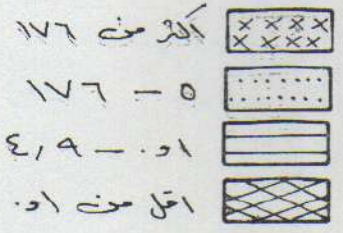 اكثر من ١٧٦
٥ - ١٧٦
٠,١ - ٤,٩
اقل من ٠,١